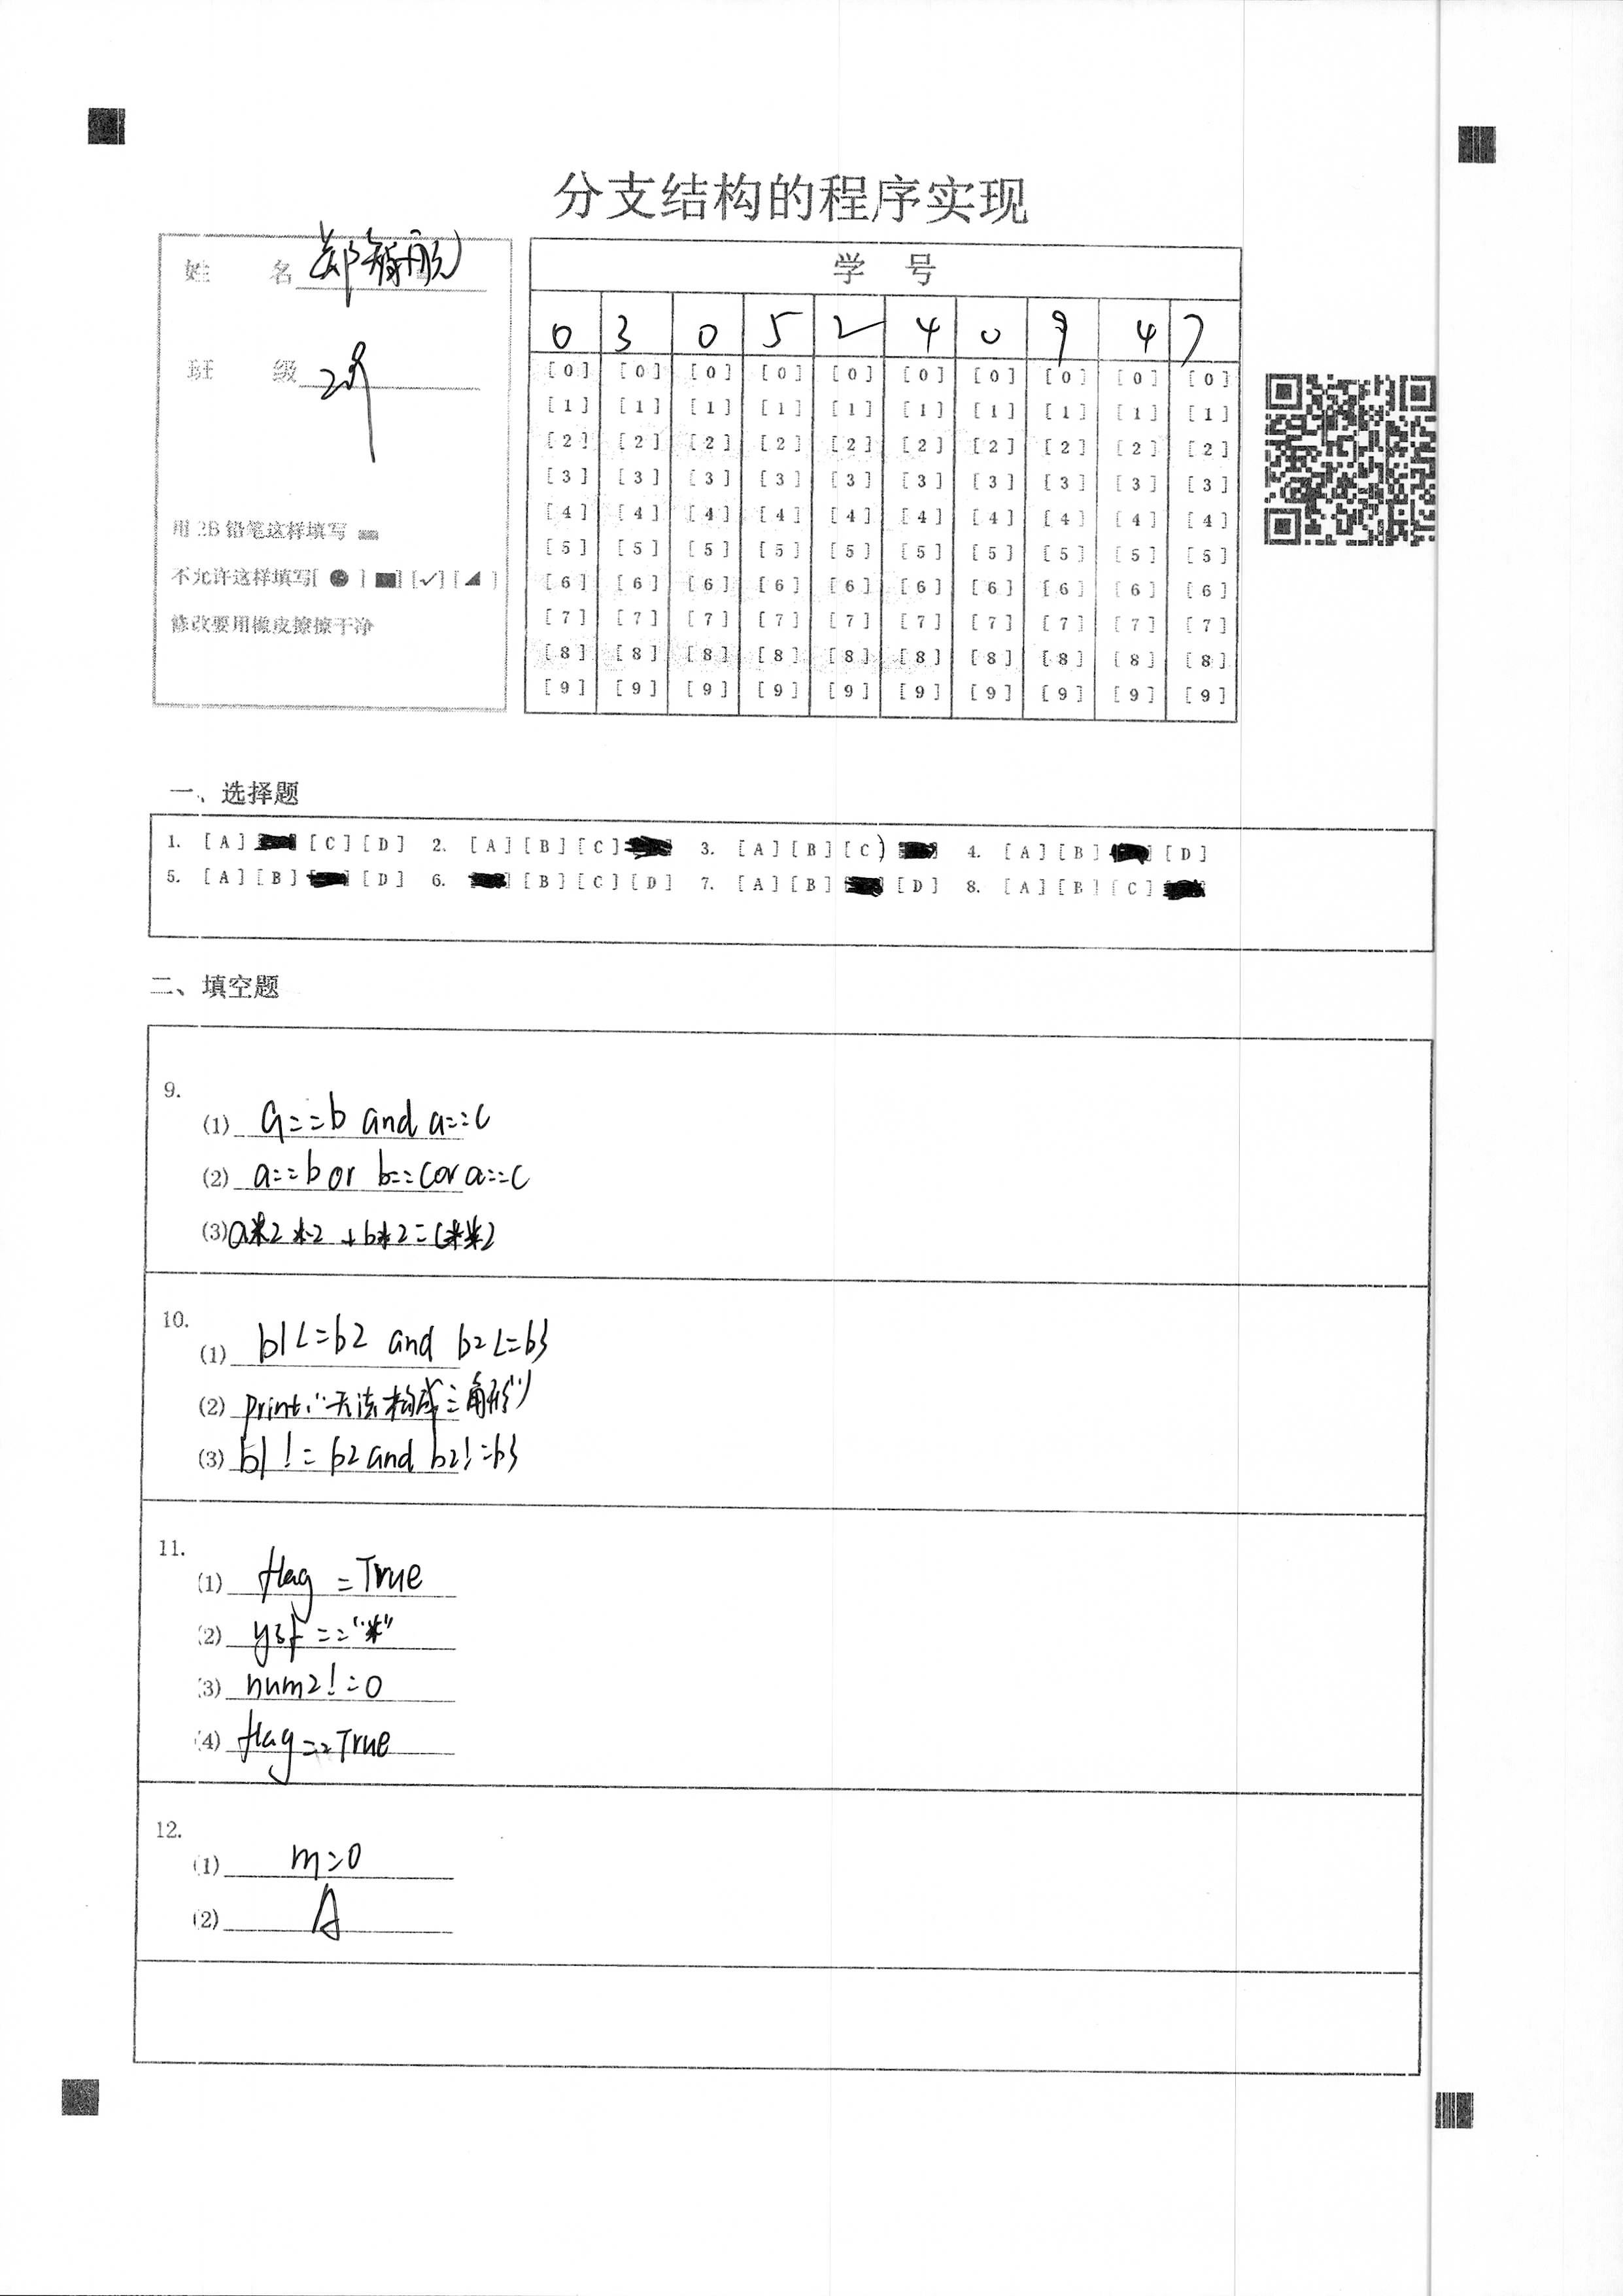 分支结构的程序实现
姓 名 郑
学 号
0 3 0 5 2 4 0 9 4 7
班 级
[0] [0] [0] [0] [0] [0] [0] [0] [0] [0]
[1] [1] [1] [1] [1] [1] [1] [1] [1] [1]
[2] [2] [2] [2] [2] [2] [2] [2] [2] [2]
[3] [3] [3] [3] [3] [3] [3] [3] [3] [3]
[4] [4] [4] [4] [4] [4] [4] [4] [4] [4]
[5] [5] [5] [5] [5] [5] [5] [5] [5] [5]
[6] [6] [6] [6] [6] [6] [6] [6] [6] [6]
[7] [7] [7] [7] [7] [7] [7] [7] [7] [7]
[8] [8] [8] [8] [8] [8] [8] [8] [8] [8]
[9] [9] [9] [9] [9] [9] [9] [9] [9] [9]
用2B铅笔这样填写
不允许这样填写[●] ■] [✓] [◢]
修改要用橡皮擦擦干净
一、选择题
1. [A] [C] [D] 2. [A] [B] [C] 3. [A] [B] [C) 4. [A] [B] [D]
5. [A] [B] [D] 6. [B] [C] [D] 7. [A] [B] [D] 8. [A] [B] [C]
二、填空题
9.
(1) a==b and a==c
(2) a==b or b==c or a==c
(3) a*2*2+b*2=c**2
10.
(1) b1<=b2 and b2<=b3
(2) print("无法构成三角形")
(3) b1!=b2 and b2!=b3
11.
(1) flag=True
(2) ysf=="*"
(3) num2!=0
(4) flag==True
12.
(1) m=0
(2) A